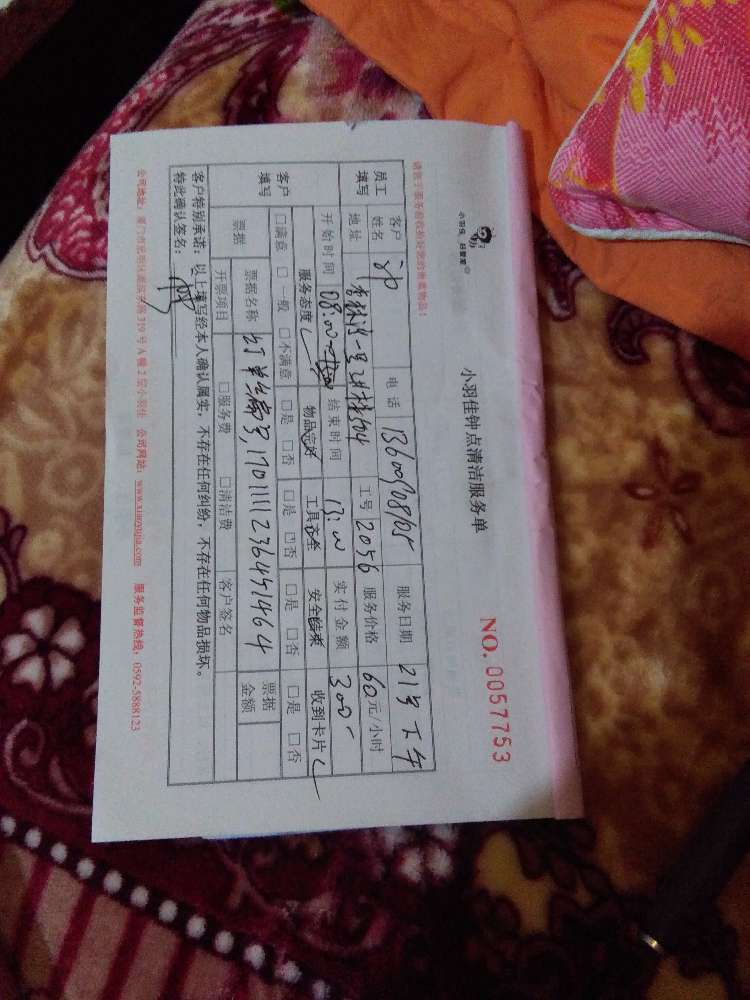 小羽佳 好管家
小羽佳钟点清洁服务单
NO. 0057753
请您于服务前收拾好您的贵重物品!
员工填写 客户姓名 电话 服务日期 21号下午
地址 工号 2056 服务价格 60元/小时
开始时间 08:00 结束时间 13:00 实付金额 300
客户填写 服务态度 物品完好 工具齐全 安全结束 收到卡片
□满意 □一般 □不满意 □是 □否 □是 □否 □是 □否 □是 □否
票据 票据名称 订单编号,1701111236451464 票据金额
开票项目 □服务费 □清洁费 客户签名
客户特别承诺:以上填写经本人确认属实,不存在任何纠纷,不存在任何物品损坏。
特此确认签名:
公司地址:厦门市思明区 319号A幢2层小羽佳 公司网站:www.xiaoyujia.com 服务监督热线:0592-5888123